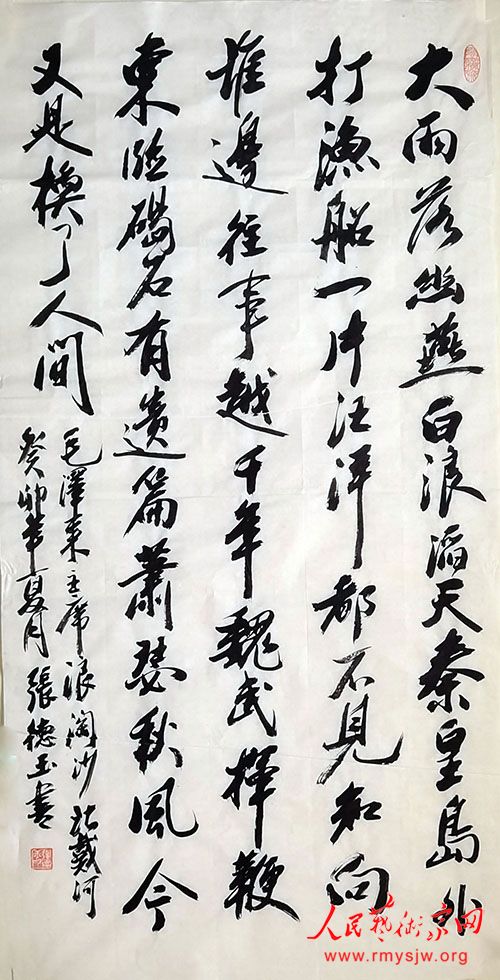 大雨落幽燕白浪滔天秦皇島外
打漁船一片汪洋都不見知向
誰邊往事越千年魏武揮鞭
東臨碣石有遺篇蕭瑟秋風今
又是換了人間
毛澤東主席浪淘沙北戴河
癸卯年夏月張德玉書
人民藝術家网
www.rmysjw.org